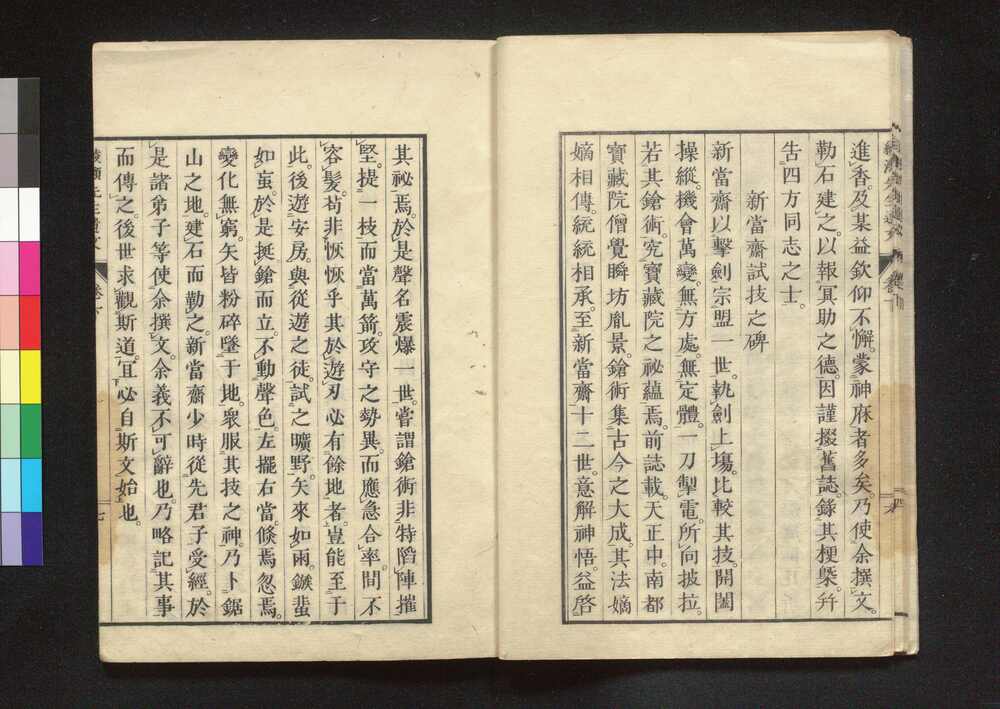 進香及某益欽仰不懈。蒙神庥者多矣。乃使余撰文。
勒石建之。以報冥助之德。因謹掇舊誌。錄其梗槩。幷
告四方同志之士。
新當齋試技之碑
新當齋以擊劍宗盟一世。執劍上塲。比較其技。開闔
操縱。機會萬變。無方處。無定體。一刀掣電。所向披拉。
若其鎗術。究寶藏院之祕蘊焉。前誌載。天正中。南都
寶藏院僧覺瞬坊胤景。鎗術集古今之大成。其法嫡
嫡相傳。統統相承。至新當齋十二世。意解神悟。益啓
其祕焉。於是聲名震爆一世。嘗謂鎗術非特䧟陣摧
堅。提一枝而當萬箭。攻守之勢異。而應急合率。間不
容髮。苟非恢恢乎其於遊刃必有餘地者。豈能至于
此。後遊安房。與從遊之徒。試之曠野。矢來如雨。鏃蜚
如蝱。於是挺鎗而立。不動聲色。左擺右當。倐焉忽焉。
變化無窮。矢皆粉碎墜于地。衆服其技之神。乃卜鋸
山之地。建石而勒之。新當齋少時從先君子受經。於
是諸弟子等使余撰文。余義不可辭也。乃略記其事
而傳之。後世求觀斯道。亘必自斯文始也。
七